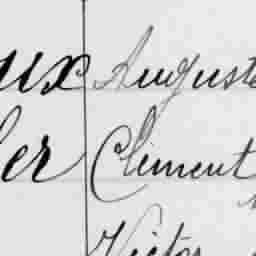 ux Auguste
er Clément
Victor